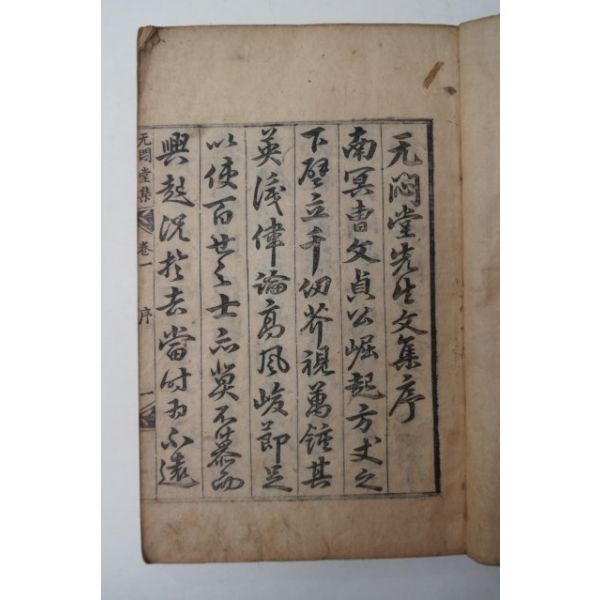 无悶堂先生文集序
南冥曹文貞公崛起方丈之
下壁立千仞芥視萬鍾其
英識偉論高風峻節足
以使百世之士亦莫不慕而
興起況於去當時為不遠
无悶堂集 卷一 序 一